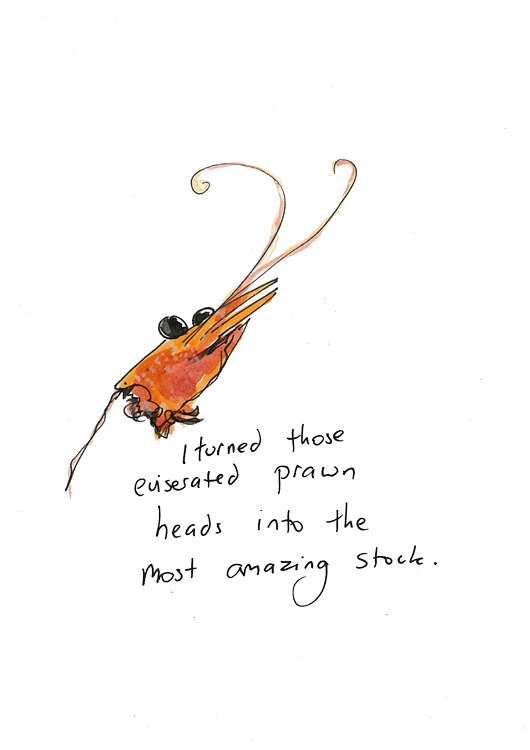 I turned those
eviserated prawn
heads into the
most amazing stock.